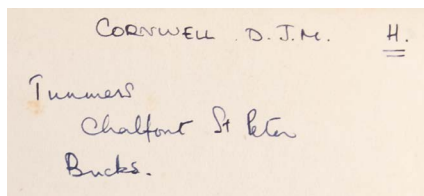 CORNWELL D.J.M. H.
Tunmers
Chalfont St Peter
Bucks.